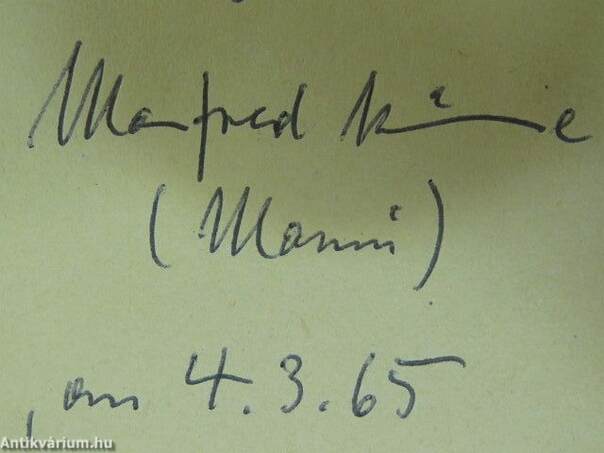 Manfred
(Manni)
, am 4.3.65
Antikvárium.hu